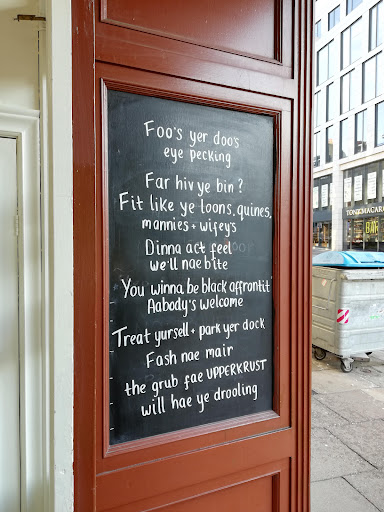 Foo's yer doo's
eye pecking
Far hiv ye bin?
Fit like ye loons, quines,
mannies + wifey's
Dinna act feel
we'll nae bite
You winna be black affrontit
Aabody's welcome
Treat yursell + park yer dock
Fash nae mair
the grub fae UPPERKRUST
will hae ye drooling
TONI MACARO
BAR